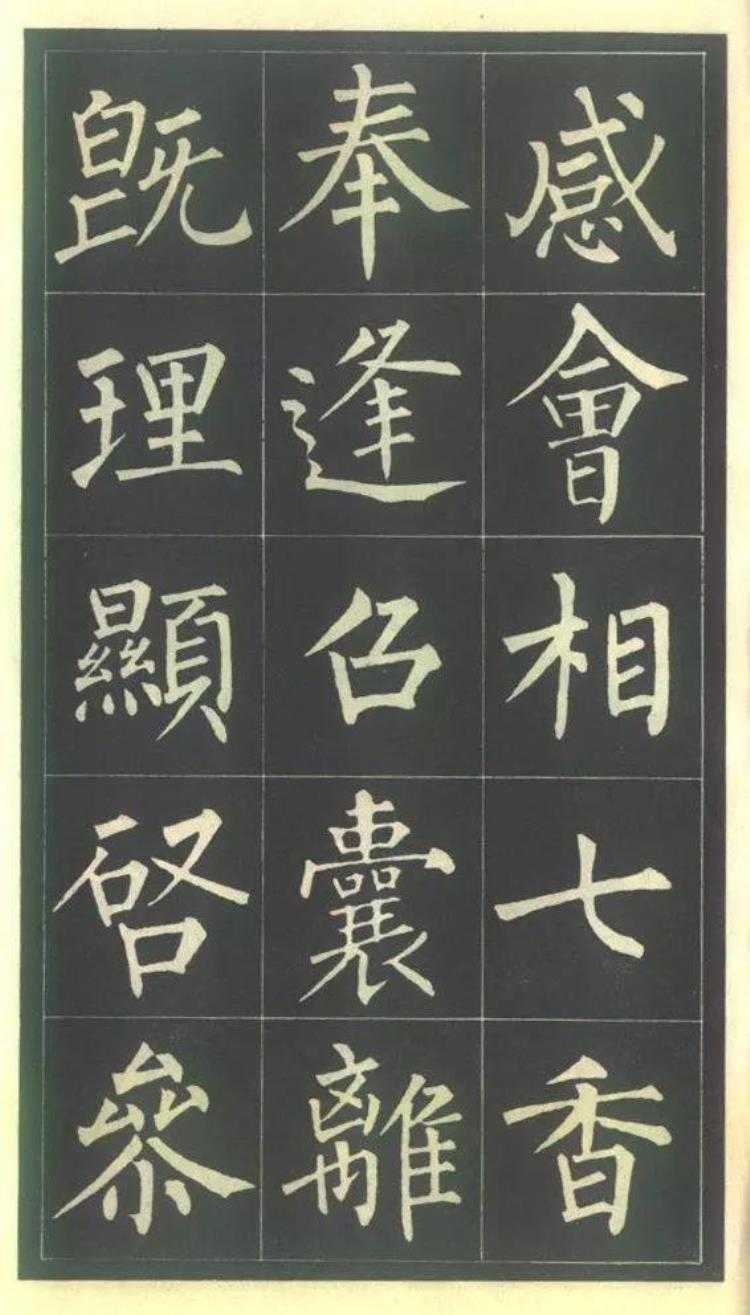 感會相七香
奉逢召囊離
既理顯啓參